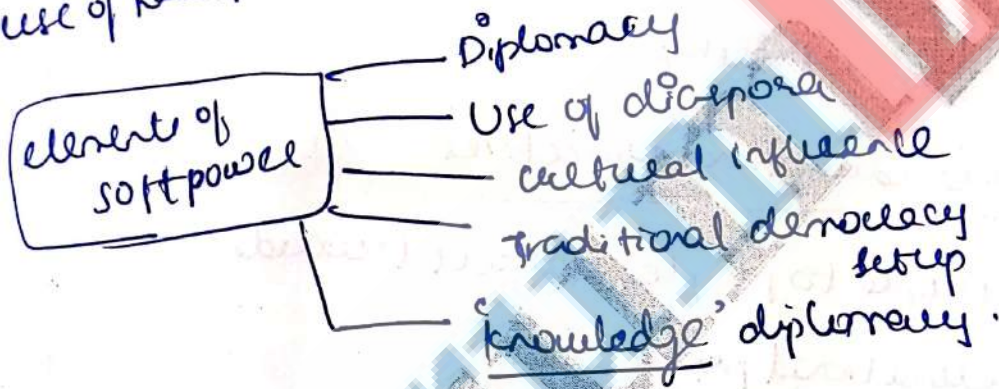 use of
elements of
softpower
Diplomacy
Use of diaspora
cultural influence
Traditional democracy
setup
'knowledge' diplomacy.